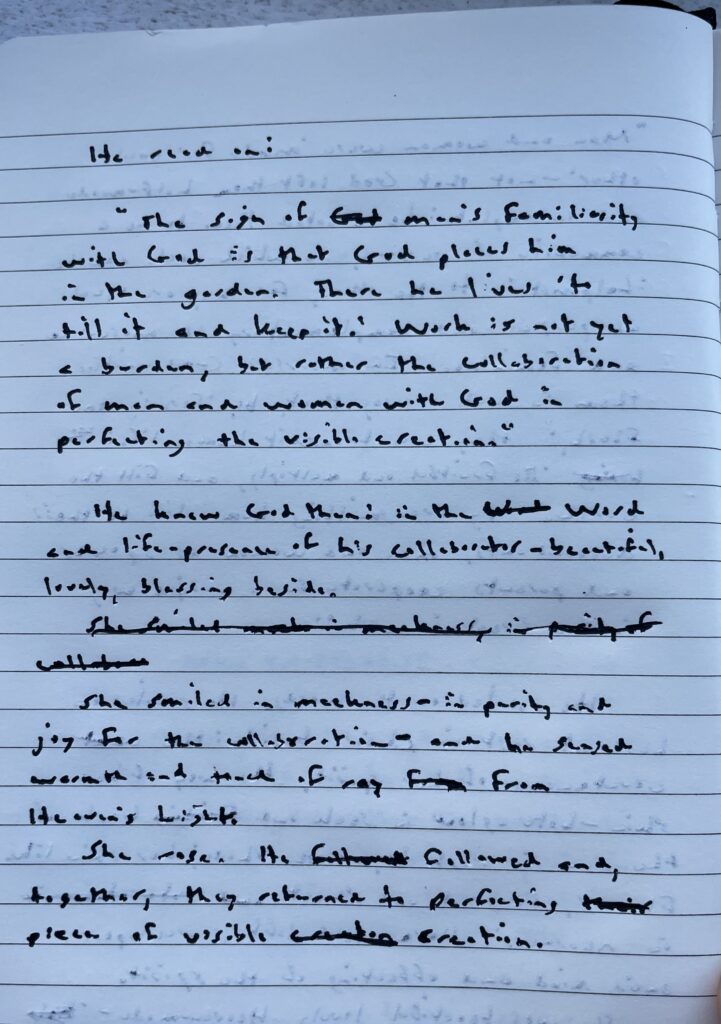 He read on:
"The sign of man's familiarity
with God is that God places him
in the garden. There he lives 'to
till it and keep it.' Work is not yet
a burden, but rather the collaboration
of man and woman with God in
perfecting the visible creation."
He knew God then: in the Word
and life-presence of his collaborator - beautiful,
lovely, blessing beside.
She smiled in meekness, in purity of
She smiled in meekness - in purity and
joy for the collaboration - and he sensed
warmth and touch of ray from
Heaven's Light.
She rose. He followed and,
together, they returned to perfecting their
piece of visible creation.